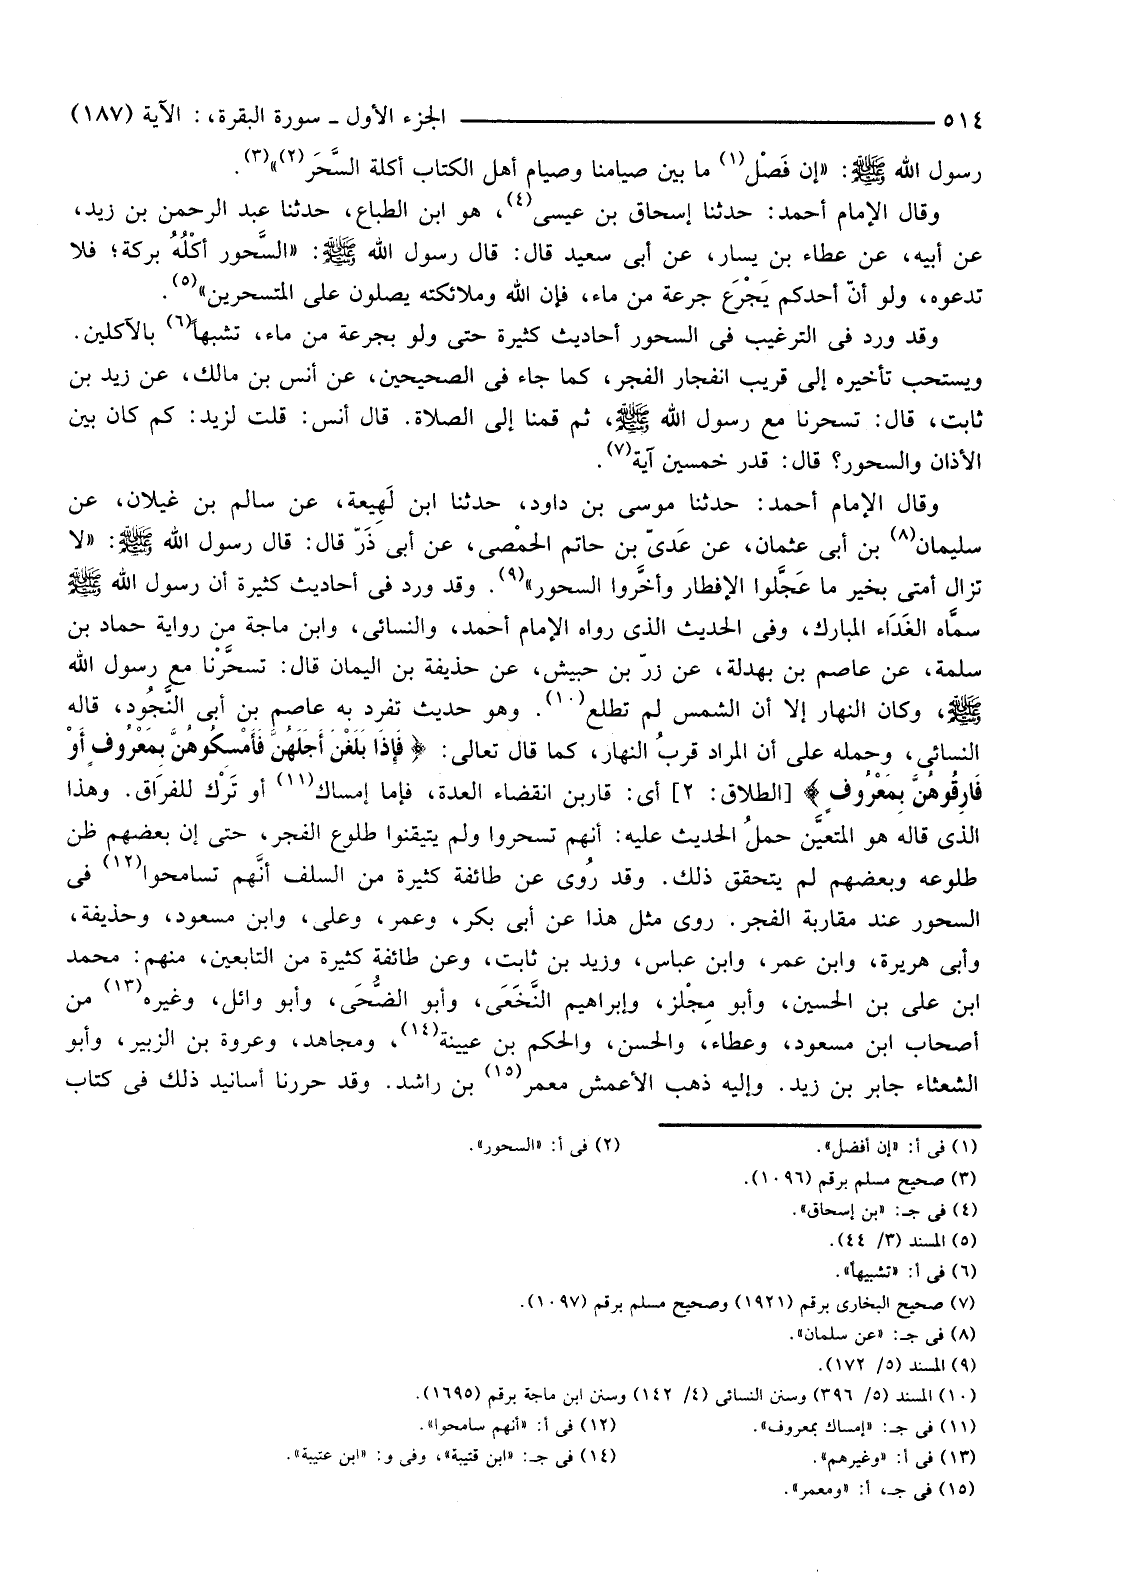 ٥١٤ ــــــ الجزء الأول ـ سورة البقرة، : الآية (١٨٧)
رسول الله ﷺ: «إن فَصْل(١) ما بين صيامنا وصيام أهل الكتاب أكلة السَّحَر(٢)»(٣).
وقال الإمام أحمد: حدثنا إسحاق بن عيسى(٤)، هو ابن الطباع، حدثنا عبد الرحمن بن زيد،
عن أبيه، عن عطاء بن يسار، عن أبى سعيد قال: قال رسول الله ﷺ: «السَّحور أكْلُهُ بركة؛ فلا
تدعوه، ولو أنّ أحدكم يَجْرَع جرعة من ماء، فإن الله وملائكته يصلون على المتسحرين»(٥).
وقد ورد فى الترغيب فى السحور أحاديث كثيرة حتى ولو بجرعة من ماء، تشبهاً(٦) بالآكلين.
ويستحب تأخيره إلى قريب انفجار الفجر، كما جاء فى الصحيحين، عن أنس بن مالك، عن زيد بن
ثابت، قال: تسحرنا مع رسول الله ﷺ، ثم قمنا إلى الصلاة. قال أنس: قلت لزيد: كم كان بين
الأذان والسحور؟ قال: قدر خمسين آية(٧).
وقال الإمام أحمد: حدثنا موسى بن داود، حدثنا ابن لَهِيعة، عن سالم بن غيلان، عن
سليمان(٨) بن أبى عثمان، عن عَدىّ بن حاتم الحمْصى، عن أبى ذَرّ قال: قال رسول الله ﷺ: «لا
تزال أمتى بخير ما عَجَّلوا الإفطار وأخَّروا السحور»(٩). وقد ورد فى أحاديث كثيرة أن رسول الله ﷺ
سمَّاه الغَدَاء المبارك، وفى الحديث الذى رواه الإمام أحمد، والنسائى، وابن ماجة من رواية حماد بن
سلمة، عن عاصم بن بهدلة، عن زرّ بن حبيش، عن حذيفة بن اليمان قال: تسحَّرْنا مع رسول الله
ﷺ، وكان النهار إلا أن الشمس لم تطلع(١٠). وهو حديث تفرد به عاصم بن أبى النَّجُود، قاله
النسائى، وحمله على أن المراد قربُ النهار، كما قال تعالى: ﴿ فَإِذَا بَلَغْنَ أَجَلَهُنَّ فَأَمْسِكُوهُنَّ بِمَعْرُوفٍ أَوْ
فَارِقُوهُنَّ بِمَعْرُوفٍ ﴾ [الطلاق: ٢] أى: قاربن انقضاء العدة، فإما إمساك(١١) أو تَرْك للفرَاق. وهذا
الذى قاله هو المتعيَّن حملُ الحديث عليه: أنهم تسحروا ولم يتيقنوا طلوع الفجر، حتى إن بعضهم ظن
طلوعه وبعضهم لم يتحقق ذلك. وقد رُوى عن طائفة كثيرة من السلف أنَّهم تسامحوا(١٢) فى
السحور عند مقاربة الفجر. روى مثل هذا عن أبى بكر، وعمر، وعلى، وابن مسعود، وحذيفة،
وأبى هريرة، وابن عمر، وابن عباس، وزيد بن ثابت، وعن طائفة كثيرة من التابعين، منهم: محمد
ابن على بن الحسين، وأبو مِجْلز، وإبراهيم النَّخَعَى، وأبو الضُّحَى، وأبو وائل، وغيره(١٣) من
أصحاب ابن مسعود، وعطاء، والحسن، والحكم بن عيينة(١٤)، ومجاهد، وعروة بن الزبير، وأبو
الشعثاء جابر بن زيد. وإليه ذهب الأعمش معمر(١٥) بن راشد. وقد حررنا أسانيد ذلك فى كتاب
(١) فى أ: «إن أفضل». (٢) فى أ: «السحور».
(٣) صحيح مسلم برقم (١٠٩٦).
(٤) فى جـ: «بن إسحاق».
(٥) المسند (٣/ ٤٤).
(٦) فى أ: «تشبيهاً».
(٧) صحيح البخارى برقم (١٩٢١) وصحيح مسلم برقم (١٠٩٧).
(٨) فى جـ: «عن سلمان».
(٩) المسند (٥/ ١٧٢).
(١٠) المسند (٥/ ٣٩٦) وسنن النسائى (٤/ ١٤٢) وسنن ابن ماجة برقم (١٦٩٥).
(١١) فى جـ: «إمساك بمعروف». (١٢) فى أ: «أنهم سامحوا».
(١٣) فى أ: «وغيرهم». (١٤) فى جـ: «ابن قتيبة»، وفى و: «ابن عتيبة».
(١٥) فى جـ، أ: «ومعمر».